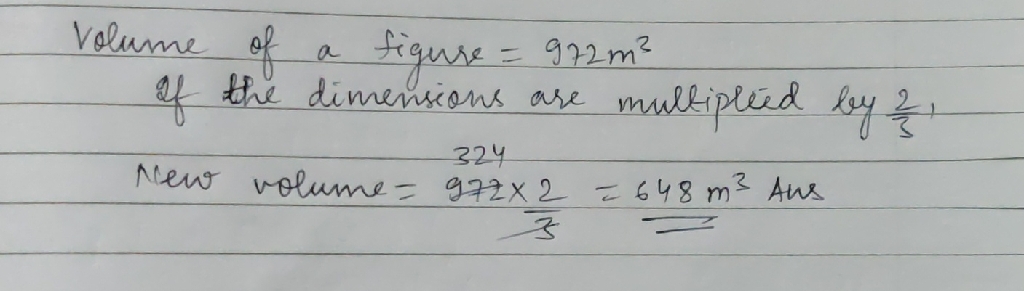 Volume of a figure = 972m³
If the dimensions are multiplied by 2/3,
324
New volume = 972 × 2/3 = 648 m³ Ans